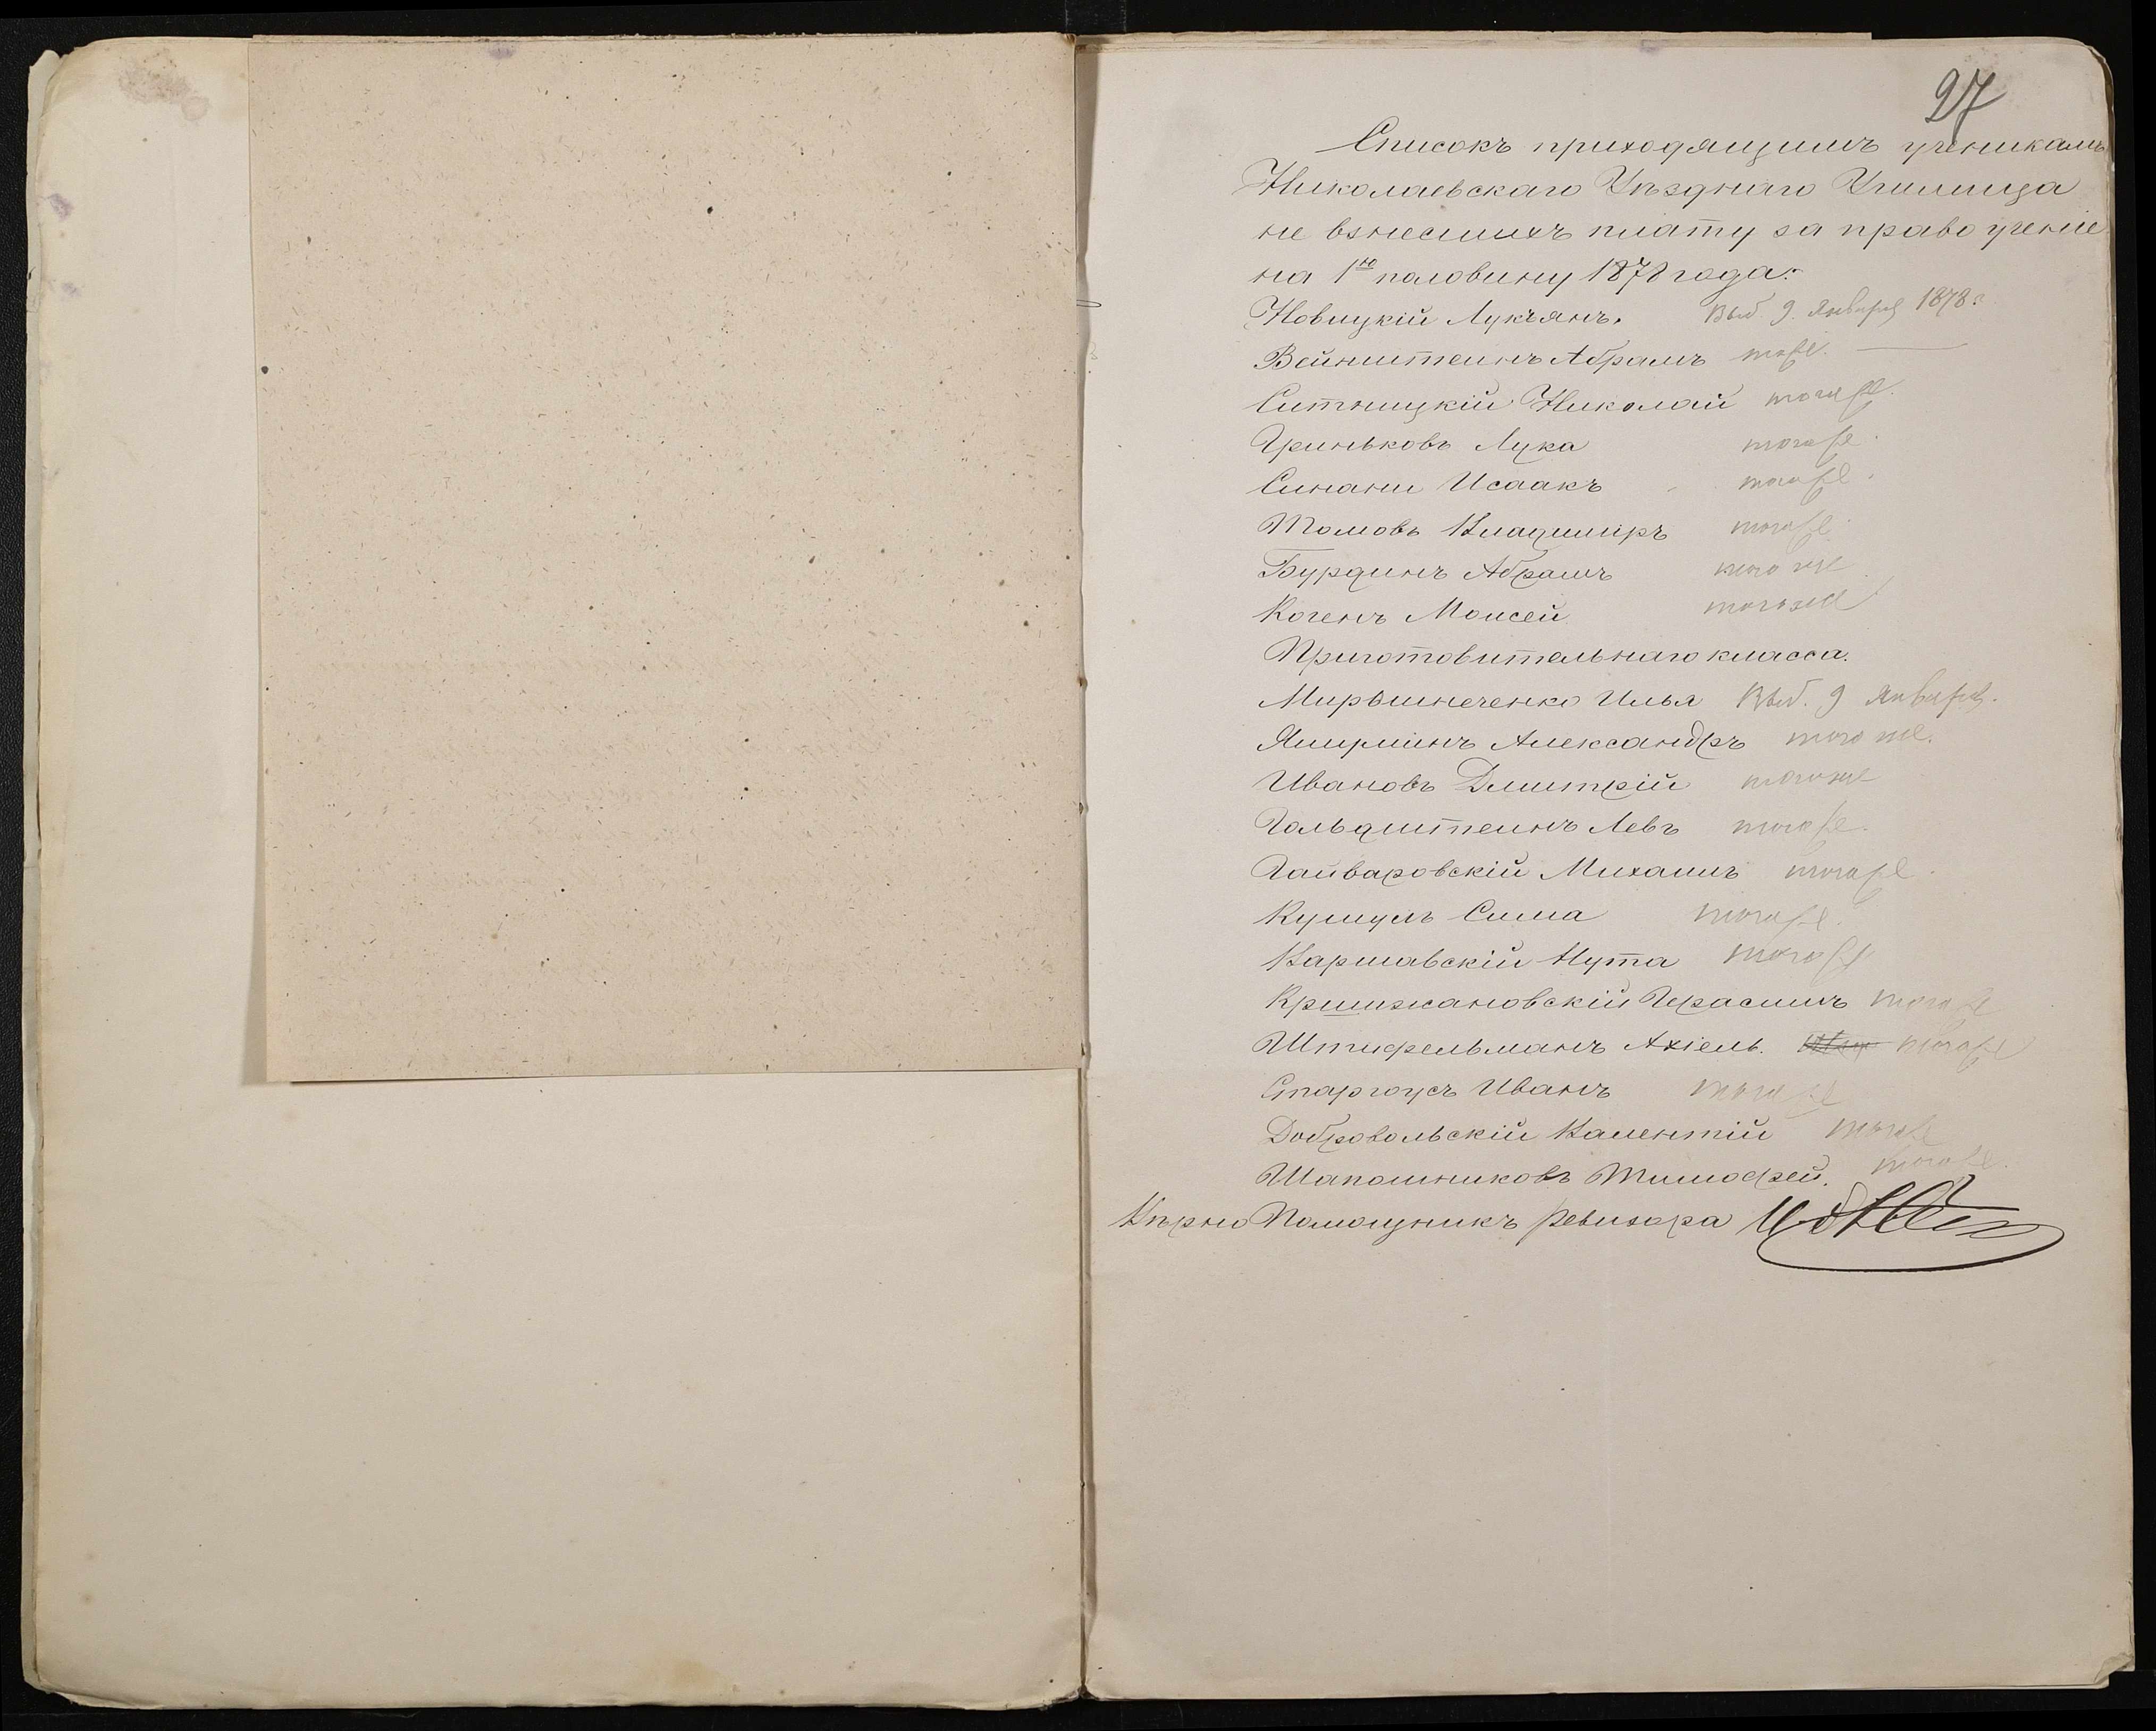 27
Списокъ приходящимъ ученикамъ
Николаевскаго Уѣзднаго Училища
не взнесшихъ плату за право ученіе
на 1ю половину 1878 года:
Новицкій Лукъянъ. Выб 9. Января 1878г
Вейнштейнъ Абрамъ тоже.
Ситницкій Николай того же.
Гриньковъ Лука того же.
Синани Исаакъ того же.
Томовъ Владимиръ того же
Бурдинъ Абрамъ того же
Когенъ Моисей того же
Приготовительнаго класса.
Мирошнеченко Илья Выб. 9 Января.
Александръ того же.
Ивановъ Дмитрій того же
Гольдштейнъ Левъ того же.
Гайваровскій Михаилъ того же.
Кушулъ Сима того же.
Варшавскій Нута того же
Кришжановскій Герасимъ того же
Штифельманъ Ахіель. того же
Старчоусъ Иванъ того же
Добровольскій Валентій того же
Шапошниковъ Тимофей. того же.
Вѣрно Помощникъ Ревизора